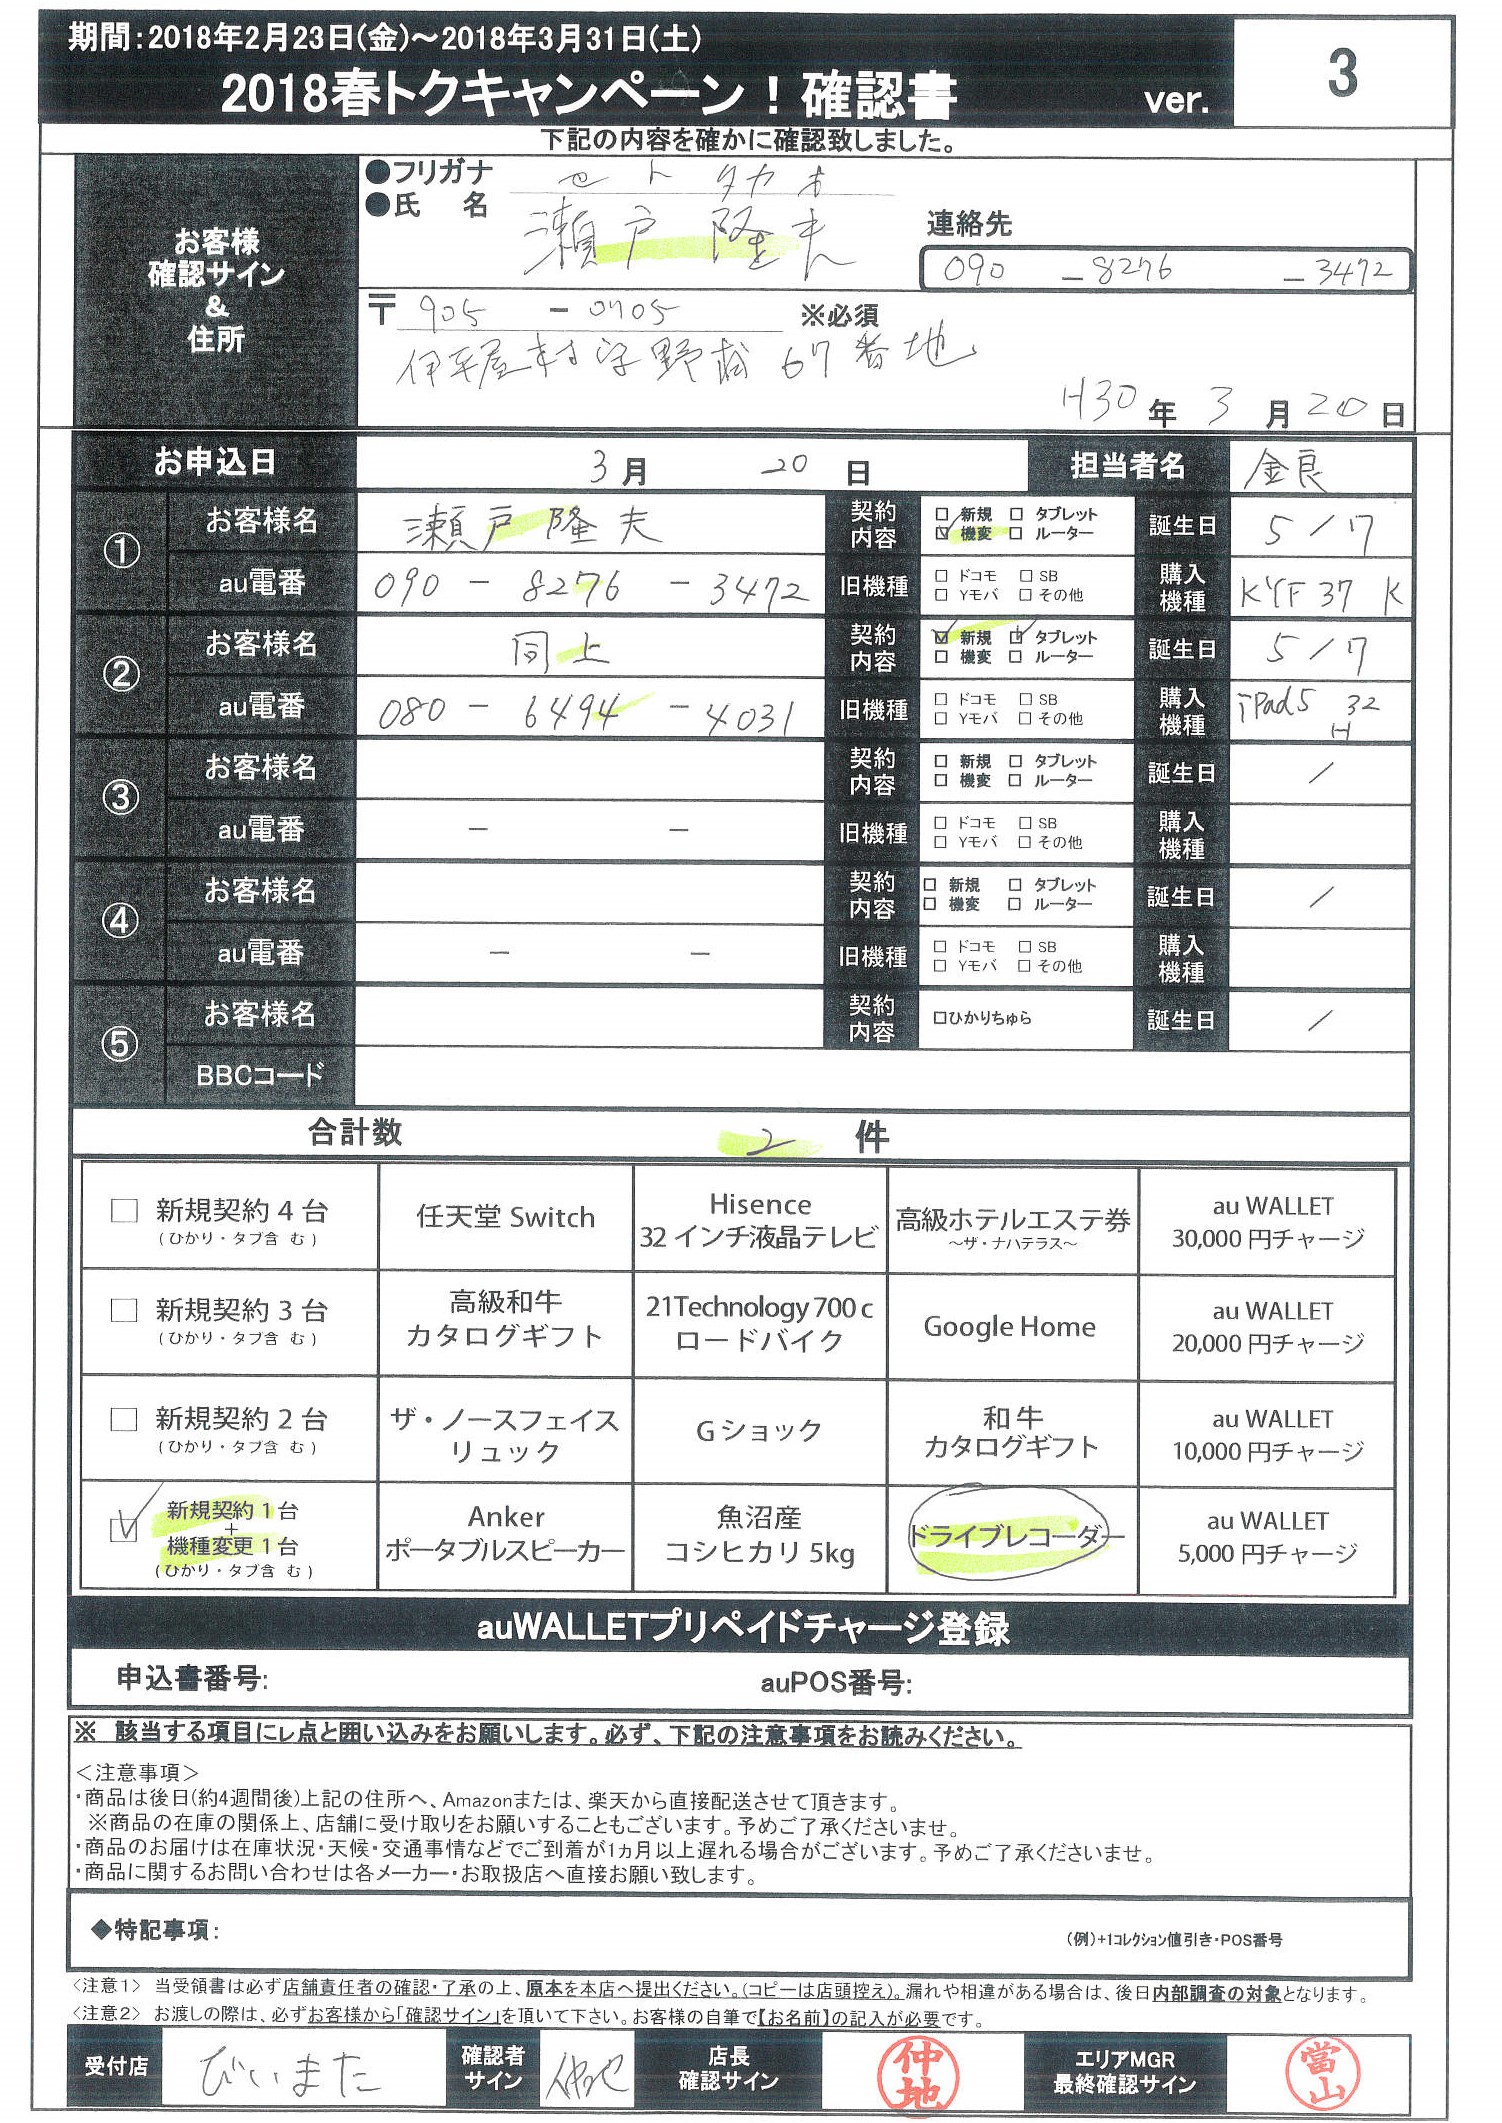 期間:2018年2月23日(金)～2018年3月31日(土)
2018春トクキャンペーン！確認書 ver. 3
下記の内容を確かに確認致しました。
お客様
確認サイン
&
住所
●フリガナ セト タカオ
●氏 名 瀬戸 隆夫
連絡先
090 - 8276 - 3472
〒 905 - 0705 ※必須
伊平屋村字野甫 67番地
H30 年 3 月 20 日
お申込日 3月 20 日 担当者名 金良
① お客様名 瀬戸 隆夫 契約内容 □ 新規 □ タブレット ☑ 機変 □ ルーター 誕生日 5/7
au電番 090 - 8276 - 3472 旧機種 □ ドコモ □ SB □ Yモバ □ その他 購入機種 KYF 37 K
② お客様名 同上 契約内容 ☑ 新規 ☑ タブレット □ 機変 □ ルーター 誕生日 5/7
au電番 080 - 6494 - 4031 旧機種 □ ドコモ □ SB □ Yモバ □ その他 購入機種 iPad5 32 H
③ お客様名 契約内容 □ 新規 □ タブレット □ 機変 □ ルーター 誕生日 /
au電番 - - 旧機種 □ ドコモ □ SB □ Yモバ □ その他 購入機種
④ お客様名 契約内容 □ 新規 □ タブレット □ 機変 □ ルーター 誕生日 /
au電番 - - 旧機種 □ ドコモ □ SB □ Yモバ □ その他 購入機種
⑤ お客様名 契約内容 □ひかりちゅら 誕生日 /
BBCコード
合計数 2 件
□ 新規契約4台 (ひかり・タブ含 む) 任天堂 Switch Hisence 32インチ液晶テレビ 高級ホテルエステ券 ～ザ・ナハテラス～ au WALLET 30,000円チャージ
□ 新規契約3台 (ひかり・タブ含 む) 高級和牛 カタログギフト 21Technology 700c ロードバイク Google Home au WALLET 20,000円チャージ
□ 新規契約2台 (ひかり・タブ含 む) ザ・ノースフェイス リュック Gショック 和牛 カタログギフト au WALLET 10,000円チャージ
☑ 新規契約1台 + 機種変更1台 (ひかり・タブ含 む) Anker ポータブルスピーカー 魚沼産 コシヒカリ5kg ドライブレコーダー au WALLET 5,000円チャージ
auWALLETプリペイドチャージ登録
申込書番号: auPOS番号:
※ 該当する項目にレ点と囲い込みをお願いします。必ず、下記の注意事項をお読みください。
＜注意事項＞
・商品は後日(約4週間後)上記の住所へ、Amazonまたは、楽天から直接配送させて頂きます。
※商品の在庫の関係上、店舗に受け取りをお願いすることもございます。予めご了承くださいませ。
・商品のお届けは在庫状況・天候・交通事情などでご到着が1ヵ月以上遅れる場合がございます。予めご了承くださいませ。
・商品に関するお問い合わせは各メーカー・お取扱店へ直接お願い致します。
◆特記事項: (例)+1コレクション値引き・POS番号
<注意1> 当受領書は必ず店舗責任者の確認・了承の上、原本を本店へ提出ください。(コピーは店頭控え)。漏れや相違がある場合は、後日内部調査の対象となります。
<注意2> お渡しの際は、必ずお客様から「確認サイン」を頂いて下さい。お客様の自筆で【お名前】の記入が必要です。
受付店 びぃまた 確認者サイン 仲地 店長確認サイン 仲地 エリアMGR最終確認サイン 當山